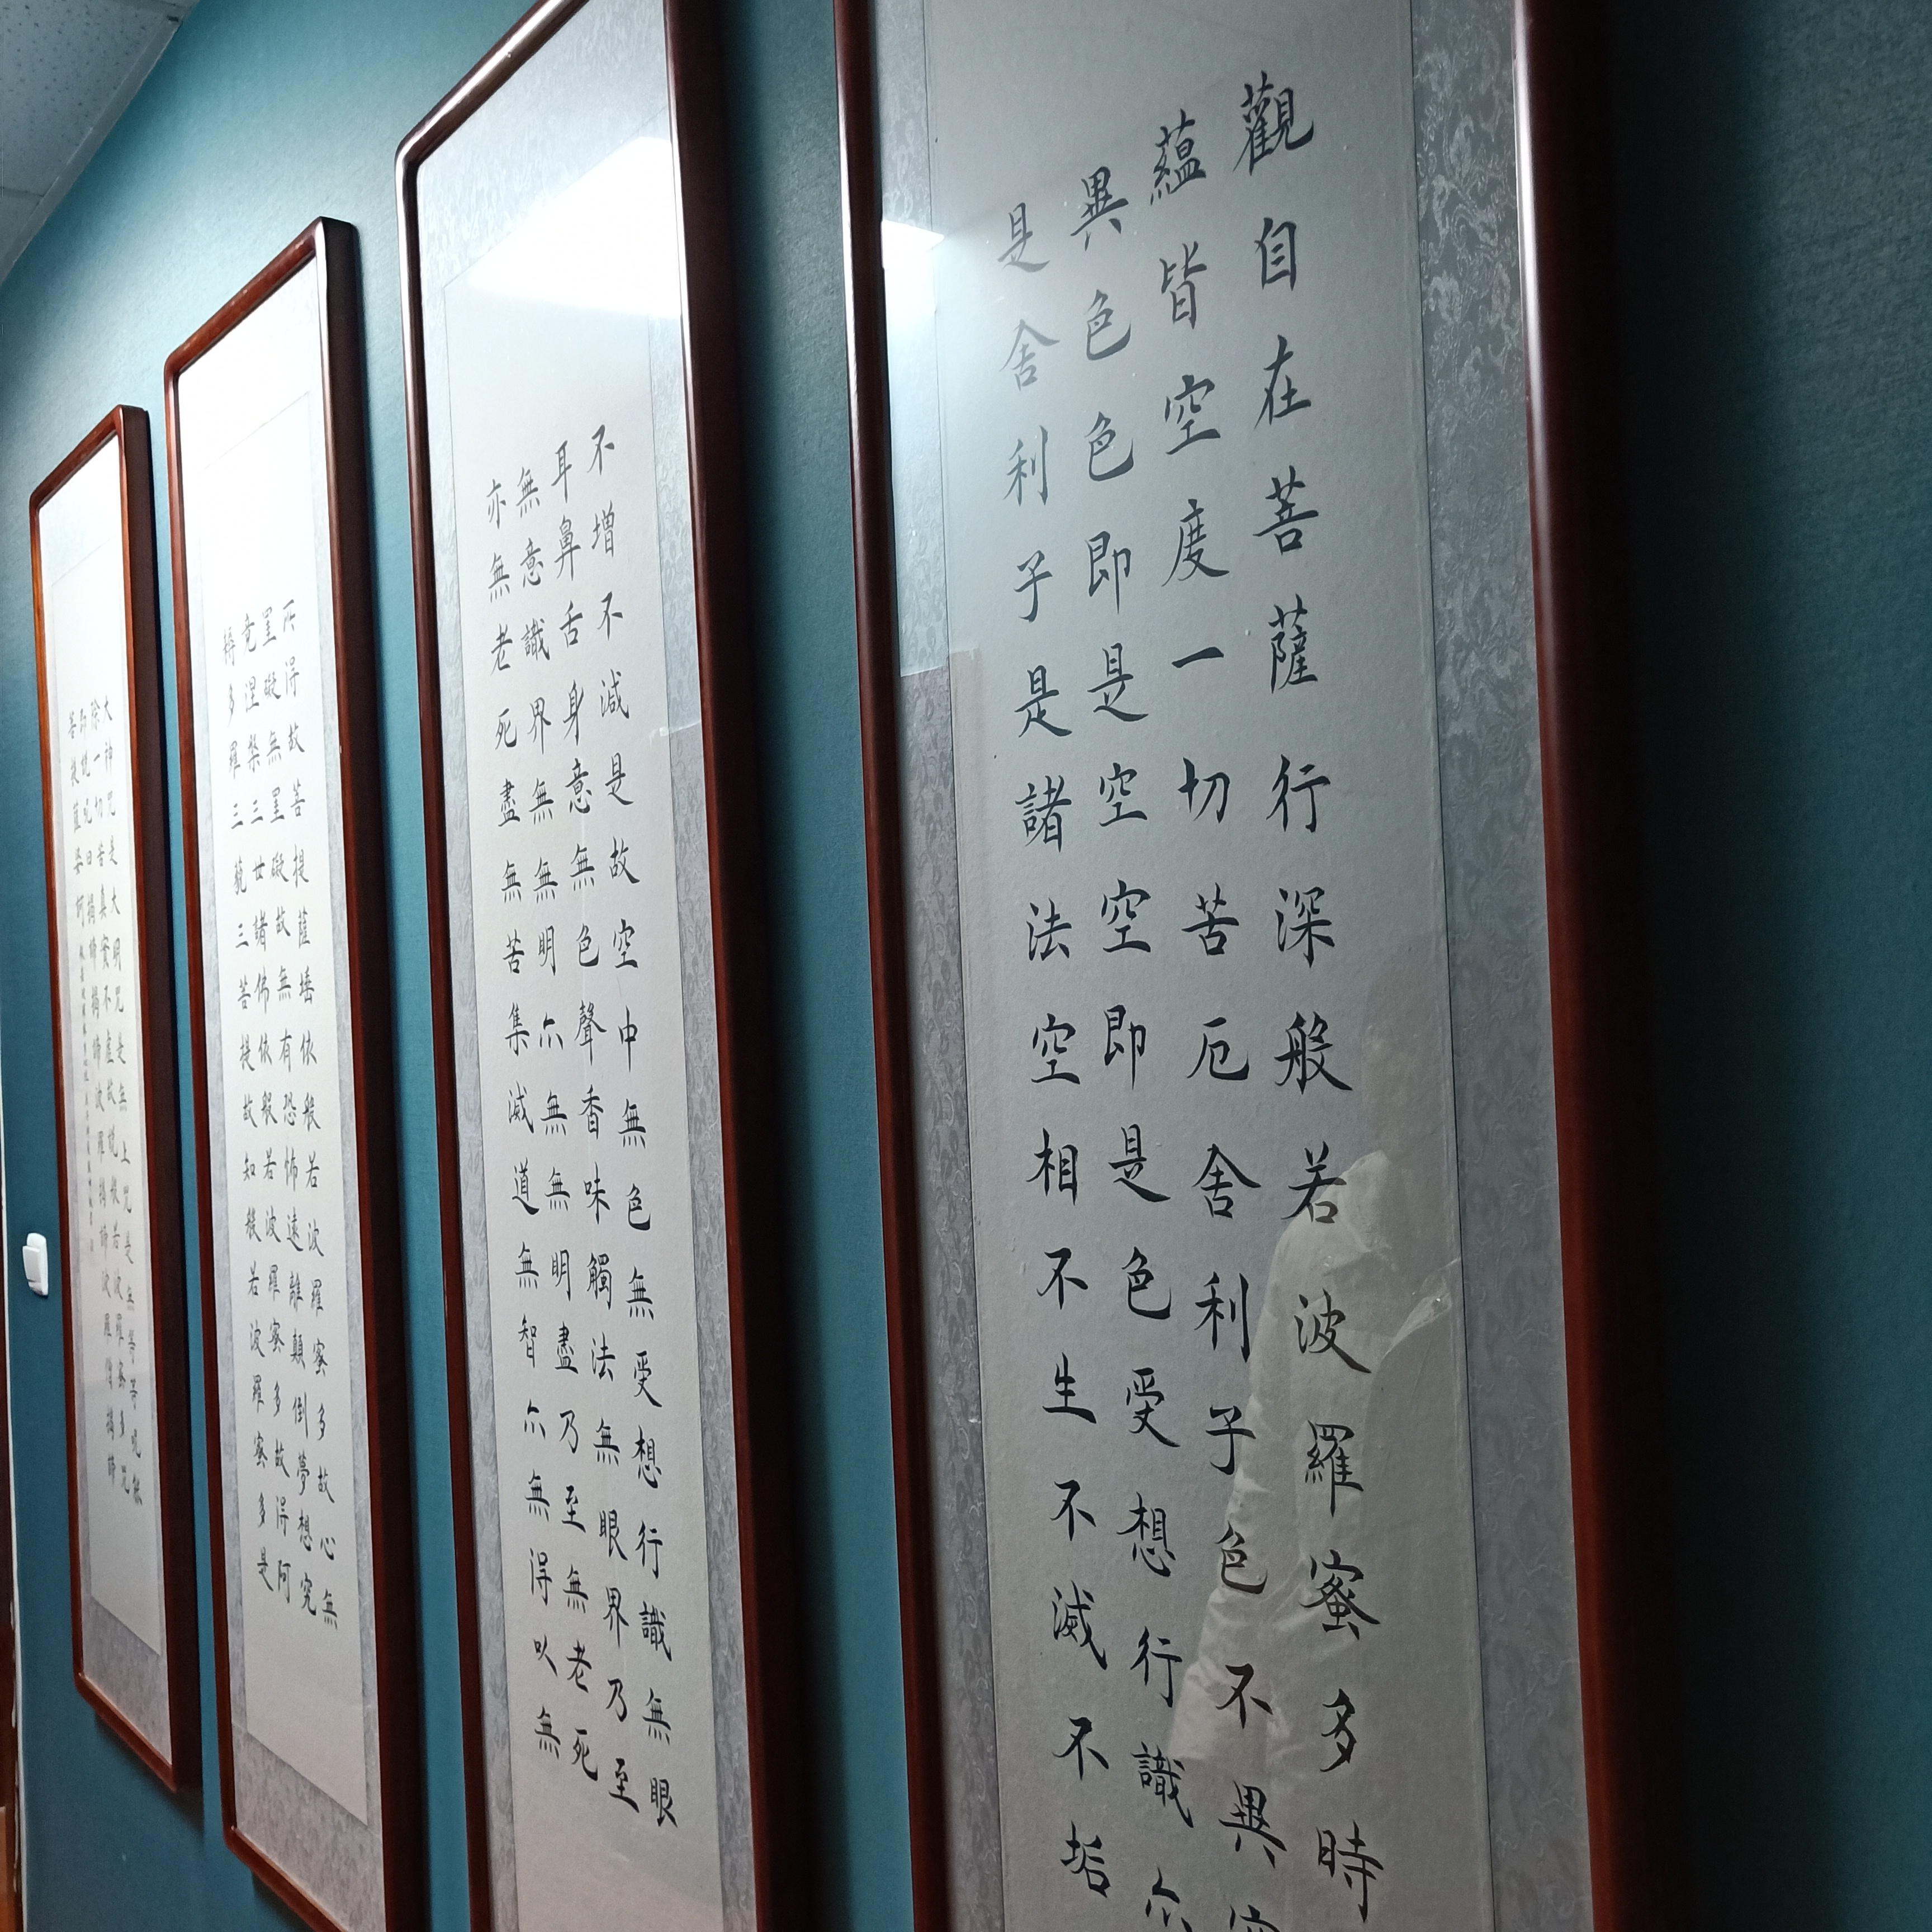 觀自在菩薩行深般若波羅蜜多時
蘊皆空度一切苦厄舍利子色不異空
異色色即是空空即是色受想行識亦
是舍利子是諸法空相不生不滅不垢
不增不減是故空中無色無受想行識無眼
耳鼻舌身意無色聲香味觸法無眼界乃至
無意識界無無明亦無無明盡乃至無老死
亦無老死盡無苦集滅道無智亦無得以無
所得故菩提薩埵依般若波羅蜜多故心無
罣礙無罣礙故無有恐怖遠離顛倒夢想究
竟涅槃三世諸佛依般若波羅蜜多故得阿
耨多羅三藐三菩提故知般若波羅蜜多是
大神咒是大明咒是無上咒是無等等呪能
除一切苦真實不虛故說般若波羅蜜多咒
即說呪曰揭諦揭諦波羅揭諦波羅僧揭諦
菩提薩婆訶